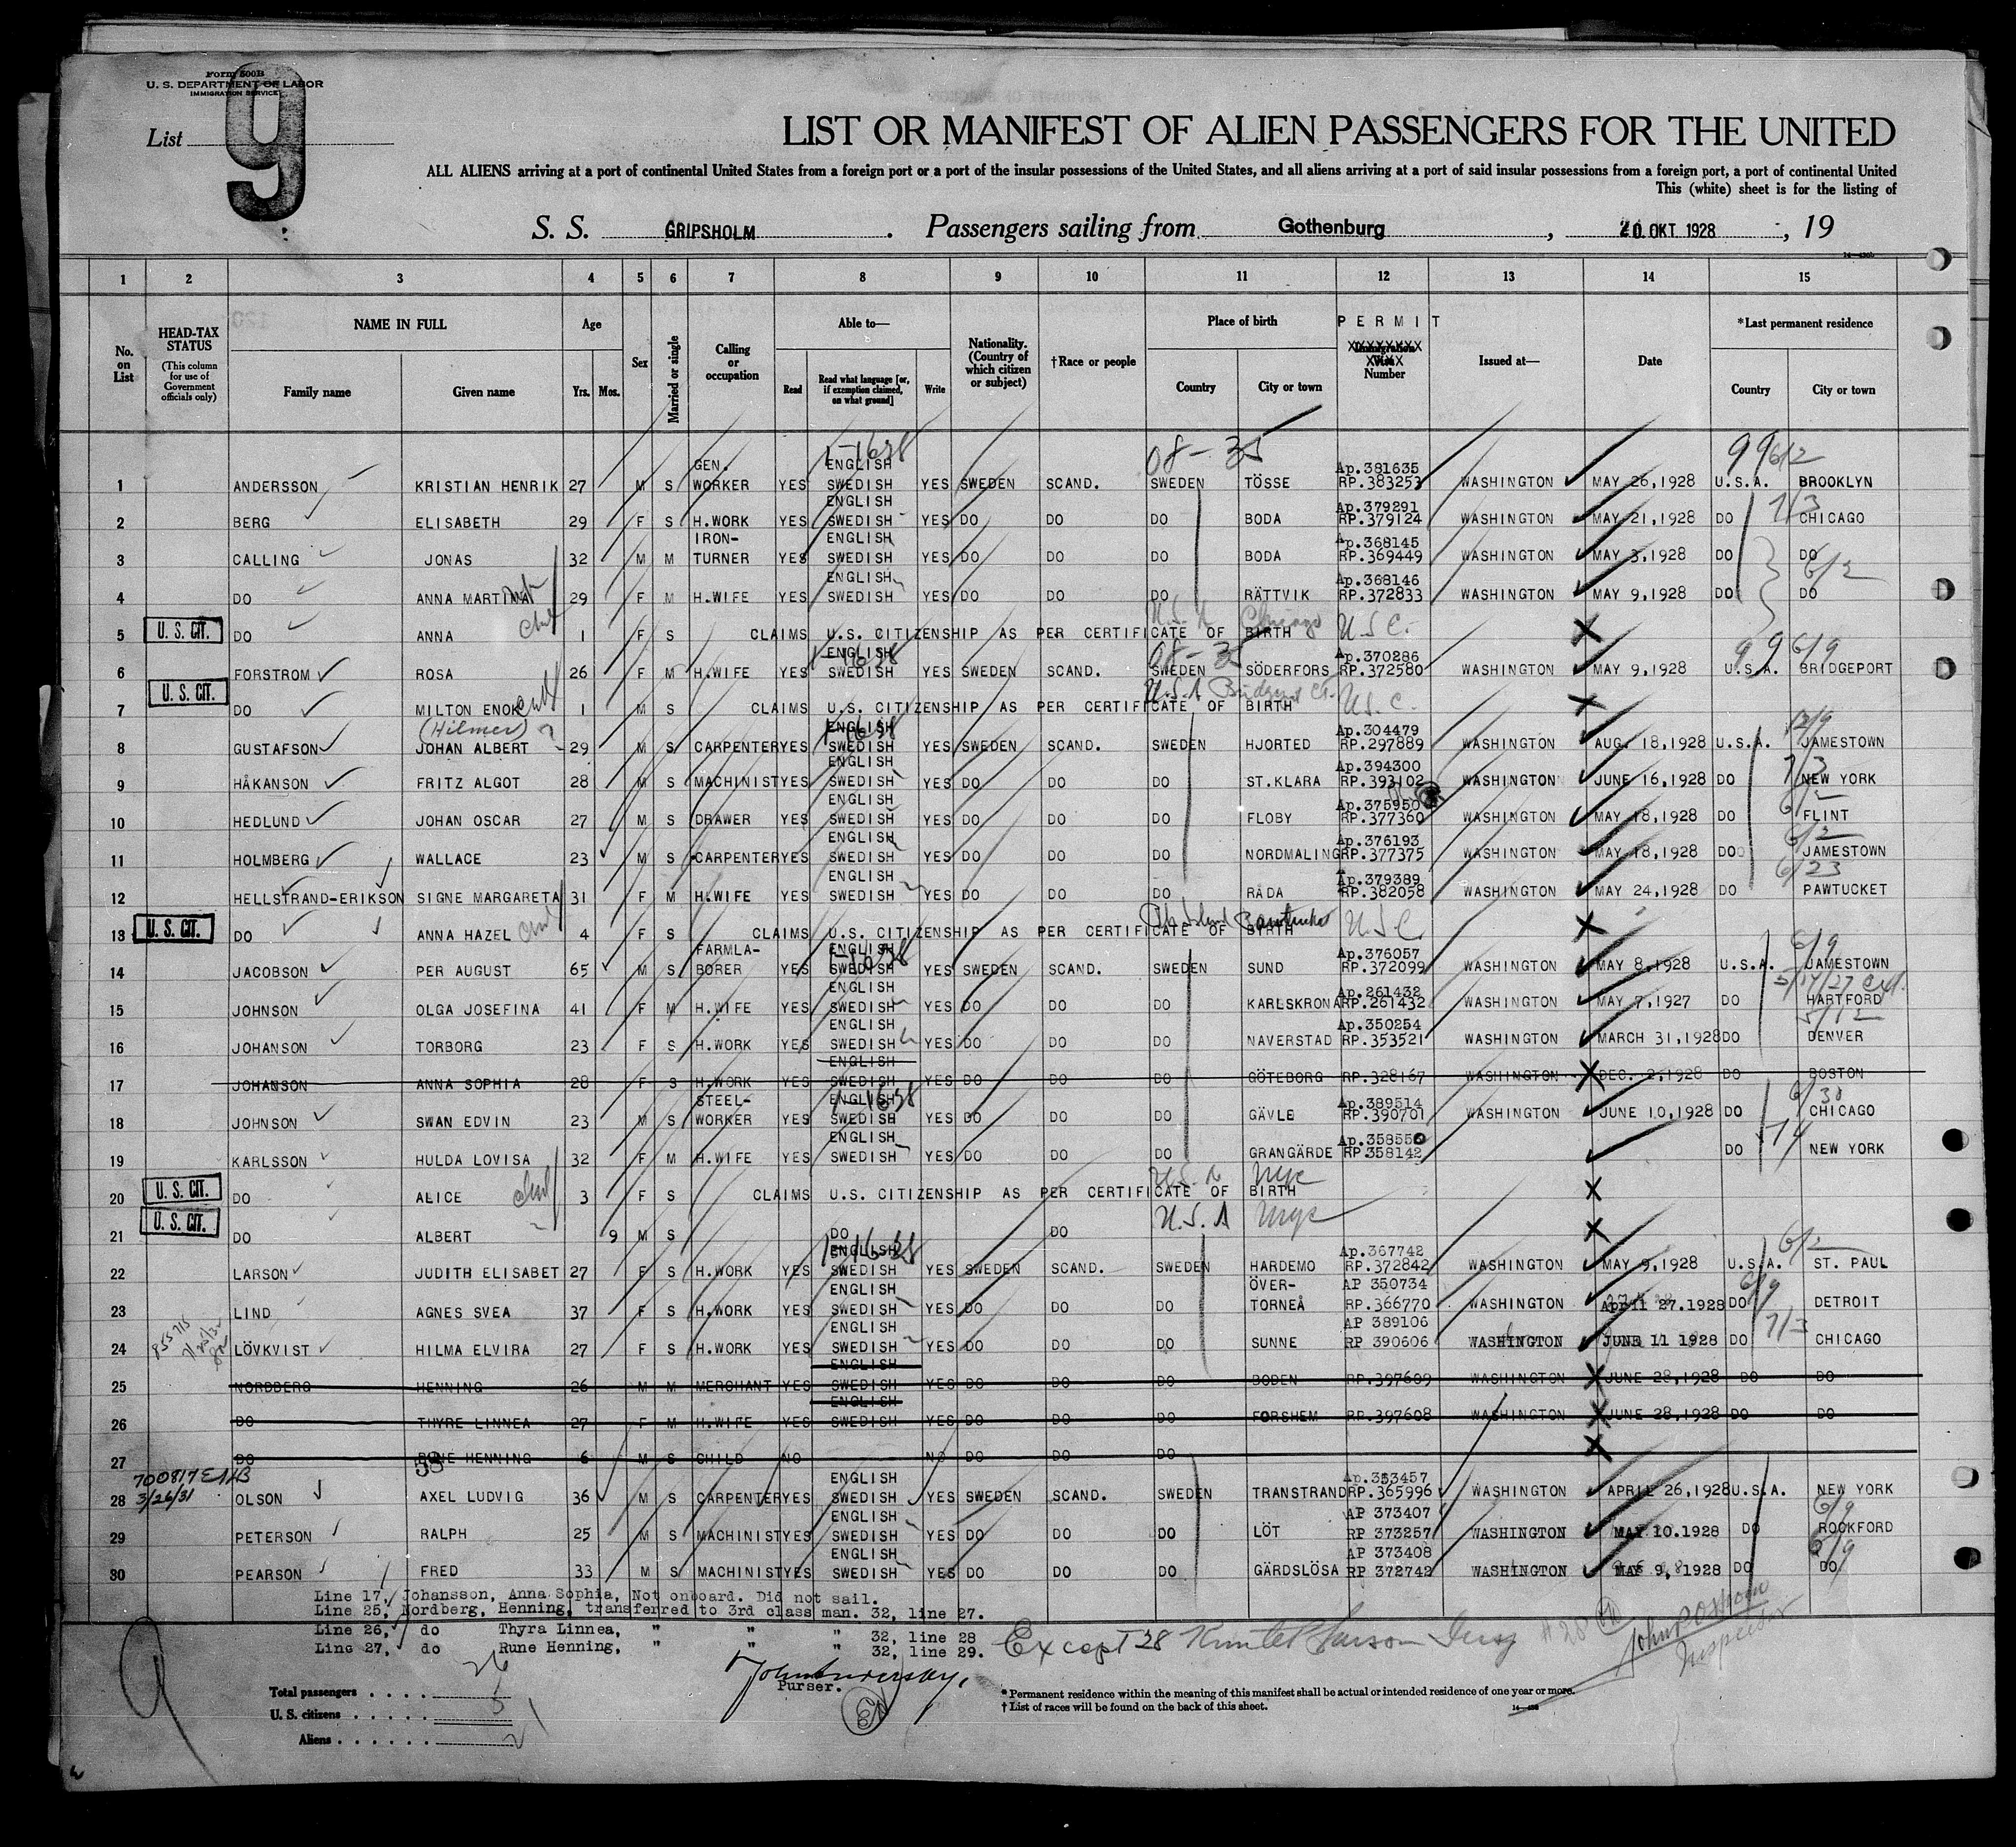 Form 500B
U. S. DEPARTMENT OF LABOR
IMMIGRATION SERVICE
List 9
LIST OR MANIFEST OF ALIEN PASSENGERS FOR THE UNITED
ALL ALIENS arriving at a port of continental United States from a foreign port or a port of the insular possessions of the United States, and all aliens arriving at a port of said insular possessions from a foreign port, a port of continental United
This (white) sheet is for the listing of
S. S. GRIPSHOLM. Passengers sailing from Gothenburg, 20 OKT 1928, 19
1 2 3 4 5 6 7 8 9 10 11 12 13 14 15
No. on List
HEAD-TAX STATUS (This column for use of Government officials only)
NAME IN FULL
Family name Given name
Age Yrs. Mos.
Sex
Married or single
Calling or occupation
Able to—
Read Read what language [or, if exemption claimed, on what ground] Write
Nationality. (Country of which citizen or subject)
†Race or people
Place of birth
Country City or town
PERMIT Immigration Visa Number
Issued at—
Date
*Last permanent residence
Country City or town
1-1638 08-35 99 6/2
1 ANDERSSON KRISTIAN HENRIK 27 M S GEN. WORKER YES ENGLISH SWEDISH YES SWEDEN SCAND. SWEDEN TÖSSE Ap.381635 RP.383253 WASHINGTON MAY 26,1928 U.S.A. BROOKLYN
2 BERG ELISABETH 29 F S H.WORK YES ENGLISH SWEDISH YES DO DO DO BODA Ap.379291 RP.379124 WASHINGTON MAY 21,1928 DO 7/3 CHICAGO
3 CALLING JONAS 32 M M IRON-TURNER YES ENGLISH SWEDISH YES DO DO DO BODA Ap.368145 RP.369449 WASHINGTON MAY 3,1928 DO DO
4 DO ANNA MARTINA 29 F M H.WIFE YES ENGLISH SWEDISH YES DO DO DO RÄTTVIK Ap.368146 RP.372833 WASHINGTON MAY 9,1928 DO 6/2 DO
5 U. S. CIT. DO ANNA 1 F S CLAIMS U.S. CITIZENSHIP AS PER CERTIFICATE OF BIRTH U.S.A Chicago U S C.
6 FORSTROM ROSA 26 F M H.WIFE YES ENGLISH SWEDISH 1-1638 YES SWEDEN SCAND. SWEDEN 08-35 SÖDERFORS Ap.370286 RP.372580 WASHINGTON MAY 9,1928 U.S.A. 99 6/9 BRIDGEPORT
7 U. S. CIT. DO MILTON ENOK 1 M S CLAIMS U.S. CITIZENSHIP AS PER CERTIFICATE OF BIRTH U.S.A Bridgeport Ct. U.S.C.
8 GUSTAFSON (Hilmer) JOHAN ALBERT 29 M S CARPENTER YES ENGLISH SWEDISH 1-1638 YES SWEDEN SCAND. SWEDEN HJORTED Ap.304479 RP.297889 WASHINGTON AUG. 18,1928 U.S.A. 12/9 JAMESTOWN
9 HÅKANSON FRITZ ALGOT 28 M S MACHINIST YES ENGLISH SWEDISH YES DO DO DO ST.KLARA Ap.394300 RP.393102 WASHINGTON JUNE 16,1928 DO 7/3 NEW YORK
10 HEDLUND JOHAN OSCAR 27 M S DRAWER YES ENGLISH SWEDISH YES DO DO DO FLOBY Ap.375950 RP.377360 WASHINGTON MAY 18,1928 DO 6/2 FLINT
11 HOLMBERG WALLACE 23 M S CARPENTER YES ENGLISH SWEDISH YES DO DO DO NORDMALING Ap.376193 RP.377375 WASHINGTON MAY 18,1928 DO 6/2 JAMESTOWN
12 HELLSTRAND-ERIKSON SIGNE MARGARETA 31 F M H.WIFE YES ENGLISH SWEDISH YES DO DO DO RÅDA Ap.379389 RP.382058 WASHINGTON MAY 24,1928 DO 6/23 PAWTUCKET
13 U. S. CIT. DO ANNA HAZEL 4 F S CLAIMS U.S. CITIZENSHIP AS PER CERTIFICATE OF BIRTH Pawtucket U.S.C.
14 JACOBSON PER AUGUST 65 M S FARMLA-BORER YES ENGLISH SWEDISH 1-1638 YES SWEDEN SCAND. SWEDEN SUND Ap.376057 RP.372099 WASHINGTON MAY 8,1928 U.S.A. 6/9 JAMESTOWN
15 JOHNSON OLGA JOSEFINA 41 F M H.WIFE YES ENGLISH SWEDISH YES DO DO DO KARLSKRONA Ap.261432 RP.261432 WASHINGTON MAY 7,1927 DO 5/17/27 Ext. HARTFORD
16 JOHANSON TORBORG 23 F S H.WORK YES ENGLISH SWEDISH YES DO DO DO NAVERSTAD Ap.350254 RP.353521 WASHINGTON MARCH 31,1928 DO 5/12 DENVER
17 JOHANSON ANNA SOPHIA 28 F S H.WORK YES ENGLISH SWEDISH YES DO DO DO GÖTEBORG RP.328167 WASHINGTON DEC. 2,1928 DO BOSTON
18 JOHNSON SWAN EDVIN 23 M S STEEL-WORKER YES ENGLISH SWEDISH 1-1638 YES DO DO DO GÄVLE Ap.389514 RP.390701 WASHINGTON JUNE 10,1928 DO 6/30 CHICAGO
19 KARLSSON HULDA LOVISA 32 F M H.WIFE YES ENGLISH SWEDISH YES DO DO DO GRANGÄRDE Ap.358550 RP.358142 DO NEW YORK
20 U. S. CIT. DO ALICE 3 F S CLAIMS U.S. CITIZENSHIP AS PER CERTIFICATE OF BIRTH U.S.A Nyc
21 U. S. CIT. DO ALBERT 9 M S DO DO U.S.A Nyc
22 LARSON JUDITH ELISABET 27 F S H.WORK YES ENGLISH SWEDISH 1-1638 YES SWEDEN SCAND. SWEDEN HARDEMO Ap.367742 RP.372842 WASHINGTON MAY 9,1928 U.S.A. 6/2 ST. PAUL
23 LIND AGNES SVEA 37 F S H.WORK YES ENGLISH SWEDISH YES DO DO DO ÖVER-TORNEÅ AP 350734 RP.366770 WASHINGTON APRIL 27.1928 DO 6/9 DETROIT
24 LÖVKVIST HILMA ELVIRA 27 F S H.WORK YES ENGLISH SWEDISH YES DO DO DO SUNNE AP 389106 RP 390606 WASHINGTON JUNE 11 1928 DO 7/3 CHICAGO
25 NORDBERG HENNING 26 M M MERCHANT YES ENGLISH SWEDISH YES DO DO DO BODEN RP.397609 WASHINGTON JUNE 28,1928 DO DO
26 DO THYRE LINNEA 27 F M H.WIFE YES ENGLISH SWEDISH YES DO DO DO FORSHEM RP.397608 WASHINGTON JUNE 28,1928 DO DO
27 DO RUNE HENNING 6 M S CHILD NO NO DO DO DO
700817 3/26/31
28 OLSON AXEL LUDVIG 36 M S CARPENTER YES ENGLISH SWEDISH YES SWEDEN SCAND. SWEDEN TRANSTRAND Ap.353457 RP.365996 WASHINGTON APRIL 26,1928 U.S.A. NEW YORK
29 PETERSON RALPH 25 M S MACHINIST YES ENGLISH SWEDISH YES DO DO DO LÖT AP 373407 RP 373257 WASHINGTON MAY 10.1928 DO 6/9 ROCKFORD
30 PEARSON FRED 33 M S MACHINIST YES ENGLISH SWEDISH YES DO DO DO GÄRDSLÖSA AP 373408 RP 372742 WASHINGTON MAY 9, 1928 DO 6/9 DO
Line 17, Johansson, Anna Sophia, Not onboard. Did not sail.
Line 25, Nordberg, Henning, transferred to 3rd class man. 32, line 27.
Line 26, do Thyra Linnea, " " " 32, line 28
Line 27, do Rune Henning, " " " 32, line 29.
Except 28
Purser.
Total passengers . . . . 26
U. S. citizens . . . . . 5
Aliens . . . . . . 21
*Permanent residence within the meaning of this manifest shall be actual or intended residence of one year or more.
†List of races will be found on the back of this sheet.
9